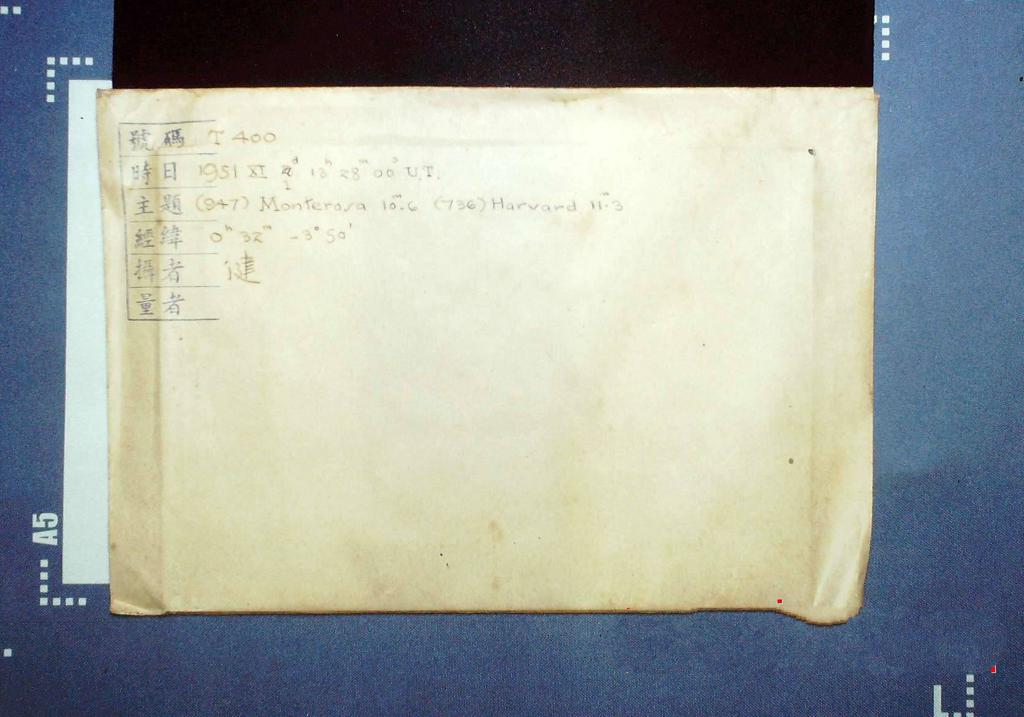 號碼 T 400
時日 1951 XI 2ᵈ 13ʰ 28ᵐ 00ˢ U.T.
1
主題 (947) Monterosa 10ᵐ.6 (736) Harvard 11ᵐ.3
經緯 0ʰ 32ᵐ -3° 50'
攝者 健
量者
A5